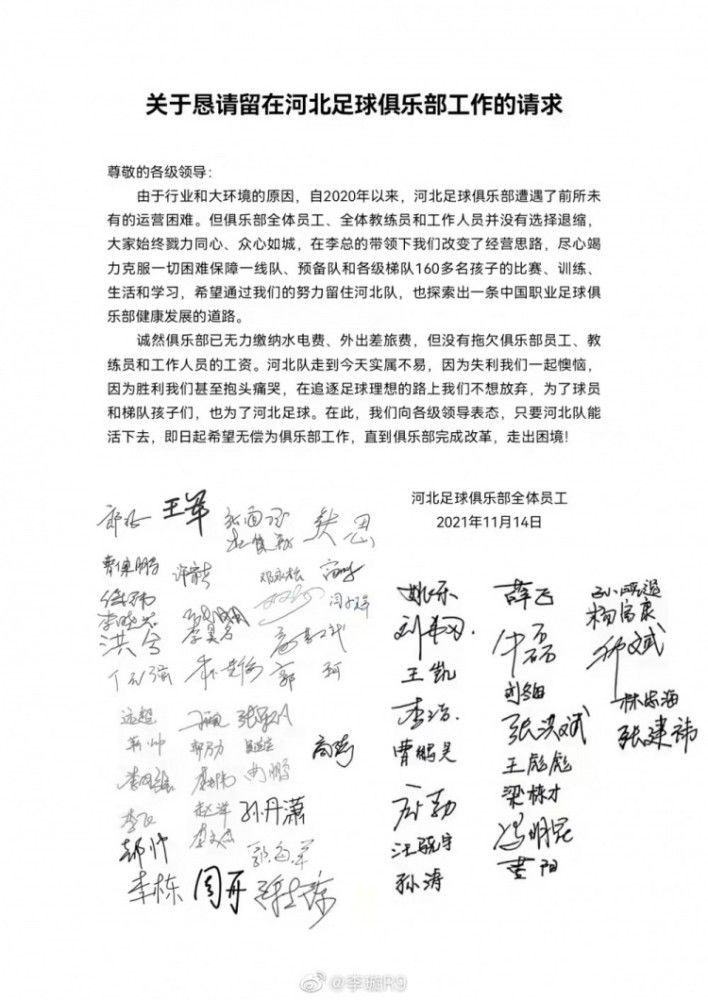 关于恳请留在河北足球俱乐部工作的请求
尊敬的各级领导：
由于行业和大环境的原因，自2020年以来，河北足球俱乐部遭遇了前所未
有的运营困难。但俱乐部全体员工、全体教练员和工作人员并没有选择退缩，
大家始终戮力同心、众心如城，在李总的带领下我们改变了经营思路，尽心竭
力克服一切困难保障一线队、预备队和各级梯队160多名孩子的比赛、训练、
生活和学习，希望通过我们的努力留住河北队，也探索出一条中国职业足球俱
乐部健康发展的道路。
诚然俱乐部已无力缴纳水电费、外出差旅费，但没有拖欠俱乐部员工、教
练员和工作人员的工资。河北队走到今天实属不易，因为失利我们一起懊恼，
因为胜利我们甚至抱头痛哭，在追逐足球理想的路上我们不想放弃，为了球员
和梯队孩子们，也为了河北足球。在此，我们向各级领导表态，只要河北队能
活下去，即日起希望无偿为俱乐部工作，直到俱乐部完成改革，走出困境！
河北足球俱乐部全体员工
2021年11月14日
王军
洪兮
郭珂
高嵩
孙丹潇
郝帅
李栋
周开
姚乐
薛飞
王凯
牛磊
李浩
张洪斌
曹鹏昊
王彪彪
梁栋才
冯明昆
孙涛
黄阳
杨富康
林忠海
张建祎
@李璇R9